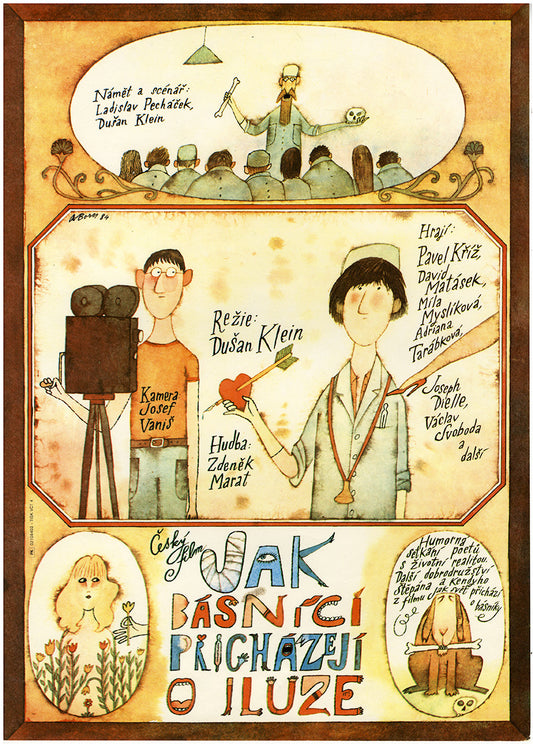 Námět a scénář:
Ladislav Pecháček,
Dušan Klein
A.Born 84
Hrají:
Pavel Kříž,
David
Matásek,
Míla
Myslíková,
Adriana
Tarábková,
Joseph
Dielle,
Václav
Svoboda
a
další
Režie:
Dušan Klein
Kamera:
Josef
Vaniš
Hudba:
Zdeněk
Marat
Český
film
JAK
BÁSNÍCI
PŘICHÁZEJÍ
O ILUZE
Humorná
setkání poetů
s životní realitou.
Další dobrodružství
Štěpána a Kendyho
z filmu Jak svět přichází
o básníky